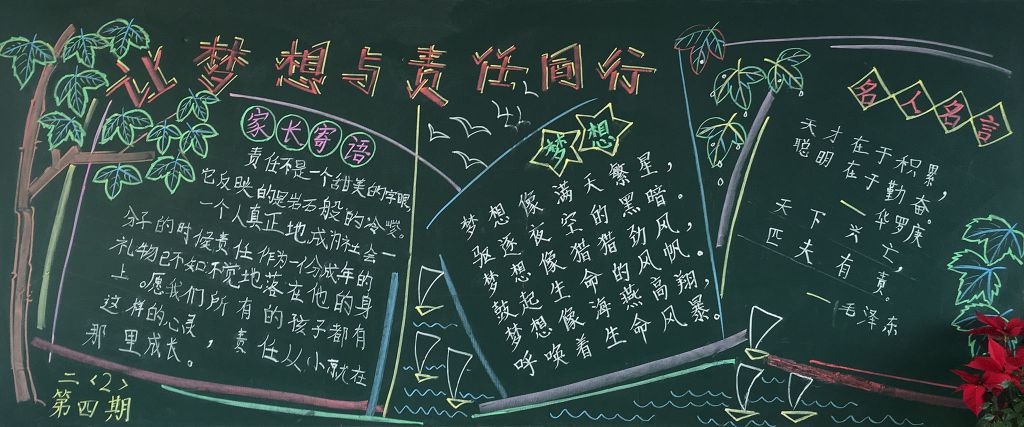 让梦想与责任同行
家长寄语
责任不是一个甜美的字眼,
它反映的是岩石般的冷峻。
一个人真正地成为社会一
分子的时候责任作为一份成年的
礼物已不知不觉地落在他的身
上。愿我们所有的孩子都有
这样的心灵,责任从小就在
那里成长。
二<2>
第四期
梦想
梦想像满天繁星,
驱逐夜空的黑暗。
梦想像猎猎劲风,
鼓起生命的风帆。
梦想像海燕高翔,
呼唤着生命风暴。
名人名言
天才在于积累,
聪明在于勤奋。
一华罗庚
天下兴亡,
匹夫有责。
一毛泽东